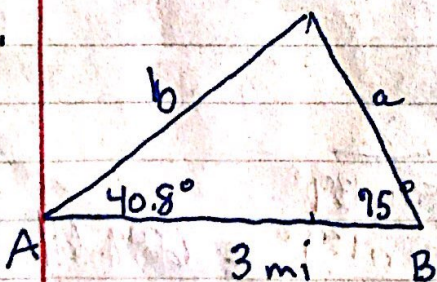 b
a
40.8°
75°
A
3 mi
B